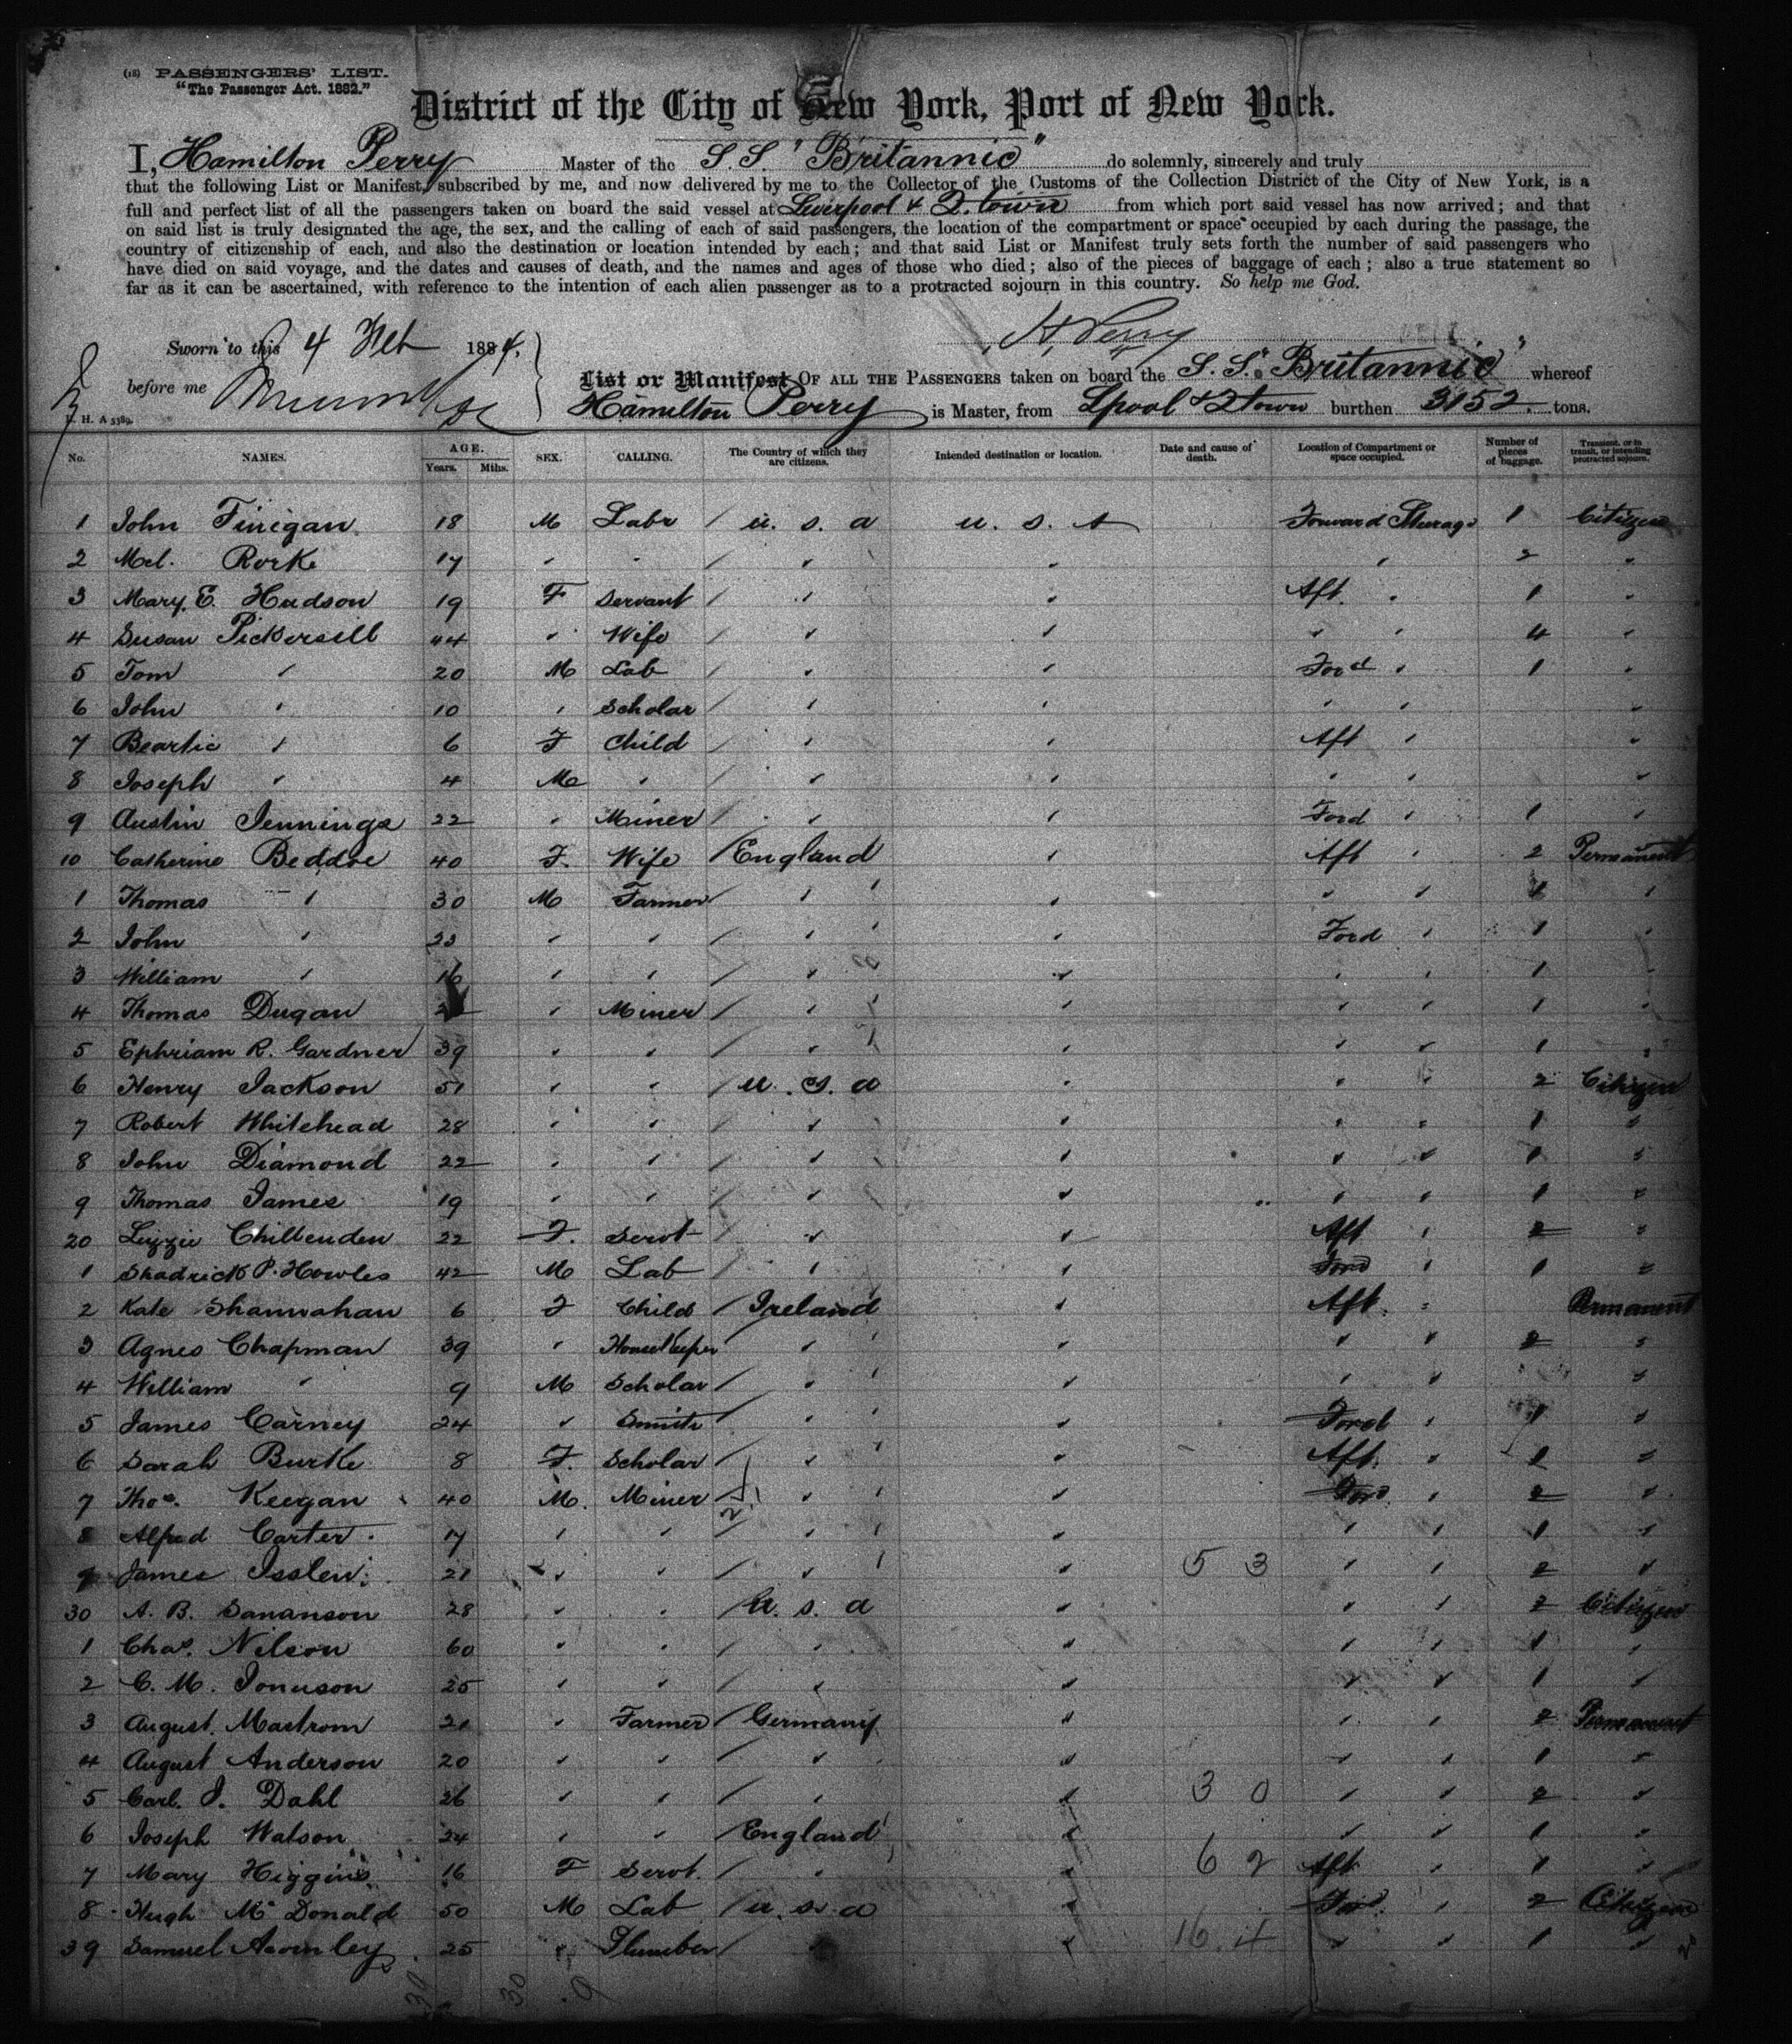 (13) PASSENGERS' LIST.
"The Passenger Act. 1882."
District of the City of New York, Port of New York.
I, Hamilton Perry Master of the S.S. "Britannic" do solemnly, sincerely and truly
that the following List or Manifest, subscribed by me, and now delivered by me to the Collector of the Customs of the Collection District of the City of New York, is a
full and perfect list of all the passengers taken on board the said vessel at Liverpool & Q.town from which port said vessel has now arrived; and that
on said list is truly designated the age, the sex, and the calling of each of said passengers, the location of the compartment or space occupied by each during the passage, the
country of citizenship of each, and also the destination or location intended by each; and that said List or Manifest truly sets forth the number of said passengers who
have died on said voyage, and the dates and causes of death, and the names and ages of those who died; also of the pieces of baggage of each; also a true statement so
far as it can be ascertained, with reference to the intention of each alien passenger as to a protracted sojourn in this country. So help me God.
H. Perry
Sworn to this 4 Feb 1884,
before me
List or Manifest OF ALL THE PASSENGERS taken on board the S.S. "Britannic" whereof
Hamilton Perry is Master, from Lpool & Qtown burthen 3152. tons.
No. NAMES. AGE. Years. Mths. SEX. CALLING. The Country of which they are citizens. Intended destination or location. Date and cause of death. Location of Compartment or space occupied. Number of pieces of baggage. Transient, or in transit, or intending protracted sojourn.
1 John Finigan 18 M Labr / u. s. a u. s. A Forward Steerage 1 Citizen
2 Mcl. Rorke 17 " " / " " " 2 "
3 Mary. E. Hudson 19 F Servant / " " Aft. " 1 "
4 Susan Pickersill 44 " Wife / " " " " 4 "
5 Tom " 20 M Lab / " " Ford " 1 "
6 John " 10 " Scholar / " " " " "
7 Beartie " 6 F Child / " " Aft " "
8 Joseph " 4 M " / " " " " "
9 Austin Jennings 22 " Miner / " " Ford " 1 "
10 Catherine Beddoe 40 F. Wife / England " Aft " 2 Permanent
1 Thomas " 30 M Farmer / " " " " "
2 John " 23 " " / " " Ford " 1 "
3 William " 16 " " / " " " " 1 "
4 Thomas Dugan " Miner / " " " " 1 "
5 Ephriam R. Gardner 39 " " / " " " " 1 "
6 Henry Jackson 51 " " / u. s. a " " " 2 Citizen
7 Robert Whitehead 28 " " / " " " " 1 "
8 John Diamond 22 " " / " " " " 1 "
9 Thomas James 19 " " / " " " " 1 "
20 Lizzie Chittenden 22 F. Servt / " " Aft " 2 "
1 Shadrick P. Howles 42 M Lab / " " Ford " 1 "
2 Kate Shannahan 6 F Child / Ireland " Aft. " Permanent
3 Agnes Chapman 39 " Housekeeper " " " " 2 "
4 William " 9 M Scholar / " " " " "
5 James Carney 24 " Smith / " " Ford " 1 "
6 Sarah Burke 8 F. Scholar / " " Aft. " 1 "
7 Thos. Keegan 40 M. Miner / " " Ford " 2 "
8 Alfred Carter 17 " " / " " " " 1 "
9 James Isslen 21 " " / " " 5 3 " " 2 "
30 A. B. Sananson 28 " " / u. s. a " " " 2 Citizen
1 Chas. Nilson 60 " " / " " " " 1 "
2 C. M. Jonuson 25 " " / " " " " 1 "
3 August. Mastrom 21 " Farmer / Germany " " " 2 Permanent
4 August Anderson 20 " " / " " " " 1 "
5 Carl. J. Dahl 26 " " / " " 3 0 " " 2 "
6 Joseph Watson 24 " " / England " " " 1 "
7 Mary Higgins 16 F Servt. / " " 6 2 Aft " 1 "
8 Hugh Mc Donald 50 M Lab / u. s. a " For. " 2 Citizen
39 Samuel 25 " Plumber / " " 16 4 " " 1 "